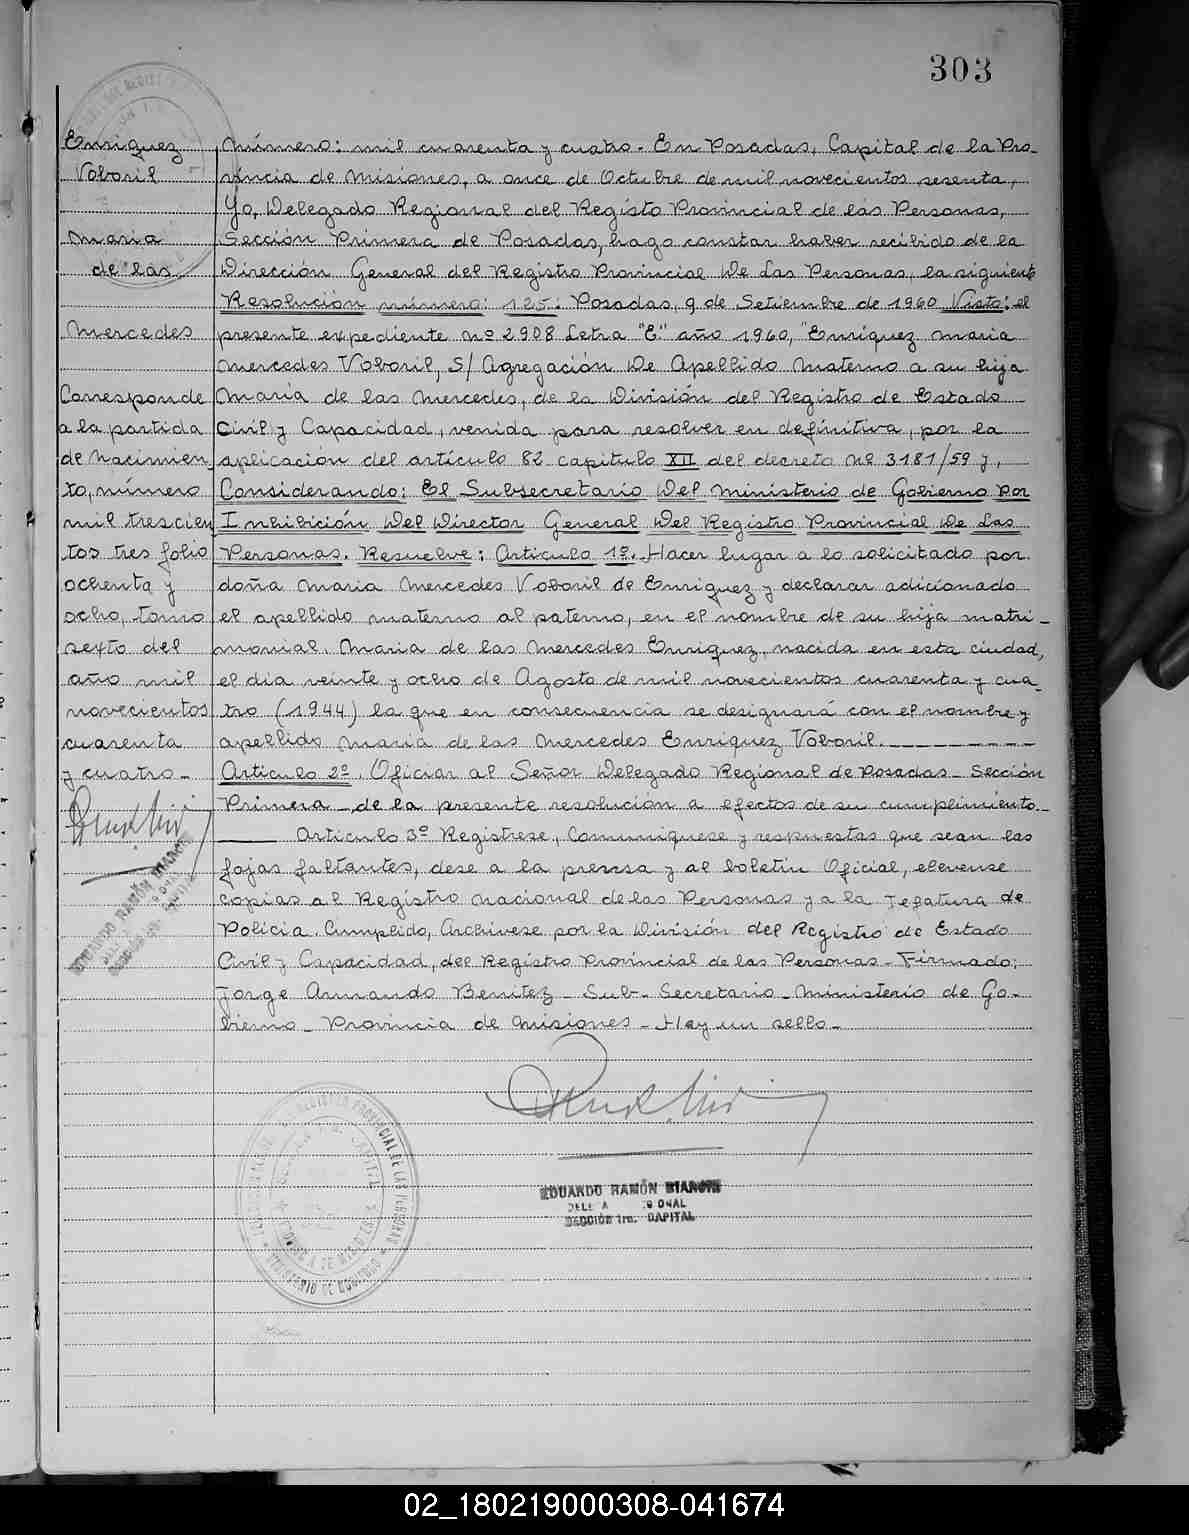 303
Enriquez
Voboril
Maria
de las
Mercedes
Corresponde
a la partida
de Nacimien
to, número
mil trescien
tos tres folio
ochenta y
ocho, tomo
sexto del
año mil
novecientos
cuarenta
y cuatro-
EDUARDO RAMÓN BIANCHI
Número: mil cuarenta y cuatro. En Posadas, Capital de la Pro-
vincia de Misiones, a once de Octubre de mil novecientos sesenta,
Yo, Delegado Regional del Registo Provincial de las Personas,
Sección Primera de Posadas, hago constar haber recibido de la
Dirección General del Registro Provincial De Las Personas, la siguiente
Resolución número: 125: Posadas, 9 de Setiembre de 1960 Visto: el
presente expediente Nº 2908 Letra "E" año 1960, "Enriquez Maria
Mercedes Voboril, S/ Agregación De Apellido Materno a su hija
María de las Mercedes, de la División del Registro de Estado
Civil y Capacidad, venida para resolver en definitiva, por la
aplicación del artículo 82 capitulo XII del decreto Nº 3181/59 y,
Considerando: El Subsecretario Del Ministerio de Gobierno Por
Inhibición Del Director General Del Registro Provincial De Las
Personas. Resuelve: Artículo 1º. Hacer lugar a lo solicitado por
doña Maria Mercedes Voboril de Enriquez y declarar adicionado
el apellido materno al paterno, en el nombre de su hija matri-
monial. Maria de las Mercedes Enriquez, nacida en esta ciudad,
el dia veinte y ocho de Agosto de mil novecientos cuarenta y cua-
tro (1944) la que en consecuencia se designará con el nombre y
apellido María de las Mercedes Enriquez Voboril.
Articulo 2º. Oficiar al Señor Delegado Regional de Posadas - Sección
Primera - de la presente resolución a efectos de su cumplimiento.-
Articulo 3º Registrese, Comuniquese y respuestas que sean las
fojas faltantes, dese a la prensa y al boletín Oficial, elevense
copias al Registro Nacional de las Personas y a la Jefatura de
Policia. Cumplido, Archivese por la División del Registro de Estado
Civil y Capacidad, del Registro Provincial de las Personas - Firmado:
Jorge Armando Benitez - Sub- Secretario - Ministerio de Go-
bierno - Provincia de Misiones - Hay un sello -
EDUARDO RAMÓN BIANCHI
SECCIÓN 1ra. CAPITAL
02_180219000308-041674